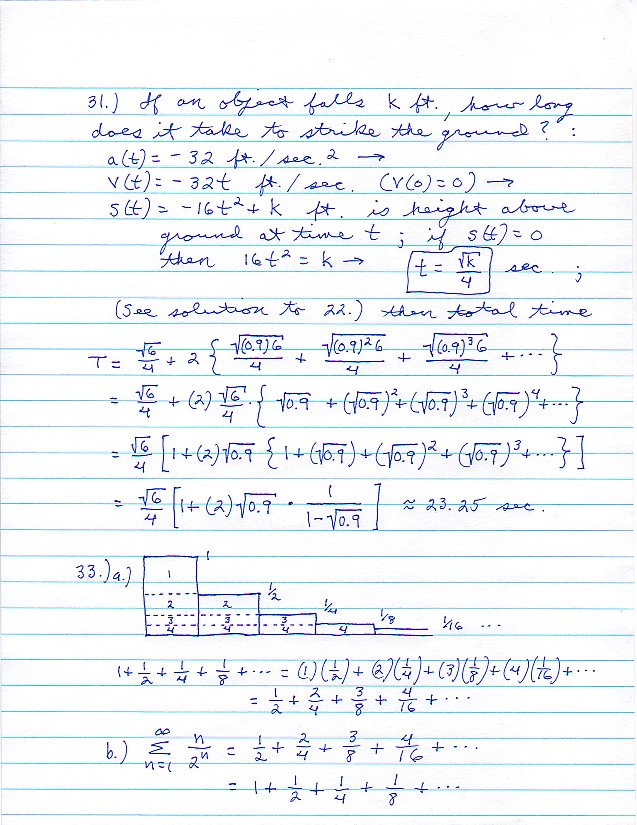 31.) If an object falls k ft., how long
does it take to strike the ground? :
a(t) = -32 ft./sec.² →
v(t) = -32t ft./sec. (v(0)=0) →
s(t) = -16t² + k ft. is height above
ground at time t ; if s(t)=0
then 16t² = k → t = √k/4 sec. ;
(See solution to 22.) then total time
T = √6/4 + 2 { √((0.9)6)/4 + √((0.9)²6)/4 + √((0.9)³6)/4 + ··· }
= √6/4 + (2) √6/4 · { √0.9 + (√0.9)² + (√0.9)³ + (√0.9)⁴ + ··· }
= √6/4 [ 1 + (2)√0.9 { 1 + (√0.9) + (√0.9)² + (√0.9)³ + ··· } ]
= √6/4 [ 1 + (2)√0.9 · 1/(1-√0.9) ] ≈ 23.25 sec.
33.) a.) 1
1
1/2
2 2
1/4
3 3 3
1/8
4 4 4 4
1/16 ···
1 + 1/2 + 1/4 + 1/8 + ··· = (1)(1/2) + (2)(1/4) + (3)(1/8) + (4)(1/16) + ···
= 1/2 + 2/4 + 3/8 + 4/16 + ···
b.) ∞ Σ n=1 n/2ⁿ = 1/2 + 2/4 + 3/8 + 4/16 + ···
= 1 + 1/2 + 1/4 + 1/8 + ···